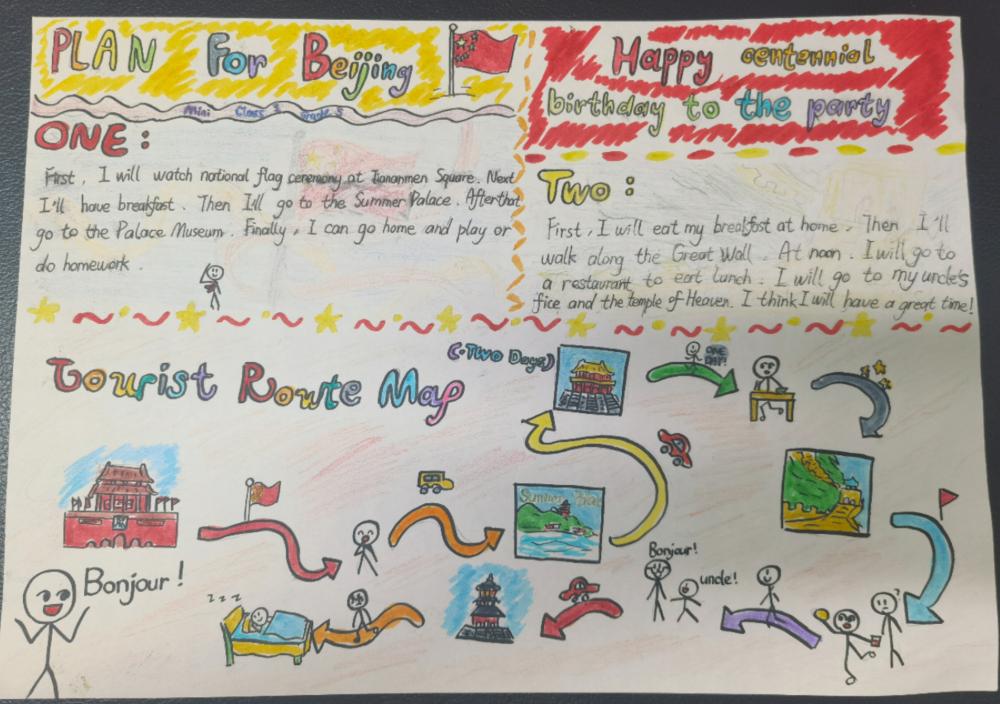 PLAN For Beijing
Mini Class 3 Grade 5
ONE:
First, I will watch national flag ceremony at Tiananmen Square. Next
I'll have breakfast. Then I'll go to the Summer Palace. After that
go to the Palace Museum. Finally, I can go home and play or
do homework.
Happy centennial
birthday to the party
Two:
First, I will eat my breakfast at home. Then I'll
walk along the Great Wall. At noon. I will go to
a restaurant to eat lunch. I will go to my uncle's
fice and the temple of Heaven. I think I will have a great time!
Tourist Route Map
(Two Days)
ONE
DAY!
Summer Palace
Bonjour!
uncle!
Bonjour!
z z z